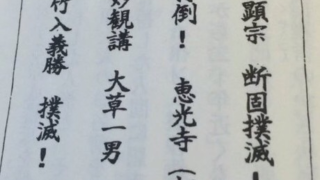 顕宗　断固撲滅！
倒！　恵光寺（
妙観講　大草一男
行入義勝　撲滅！